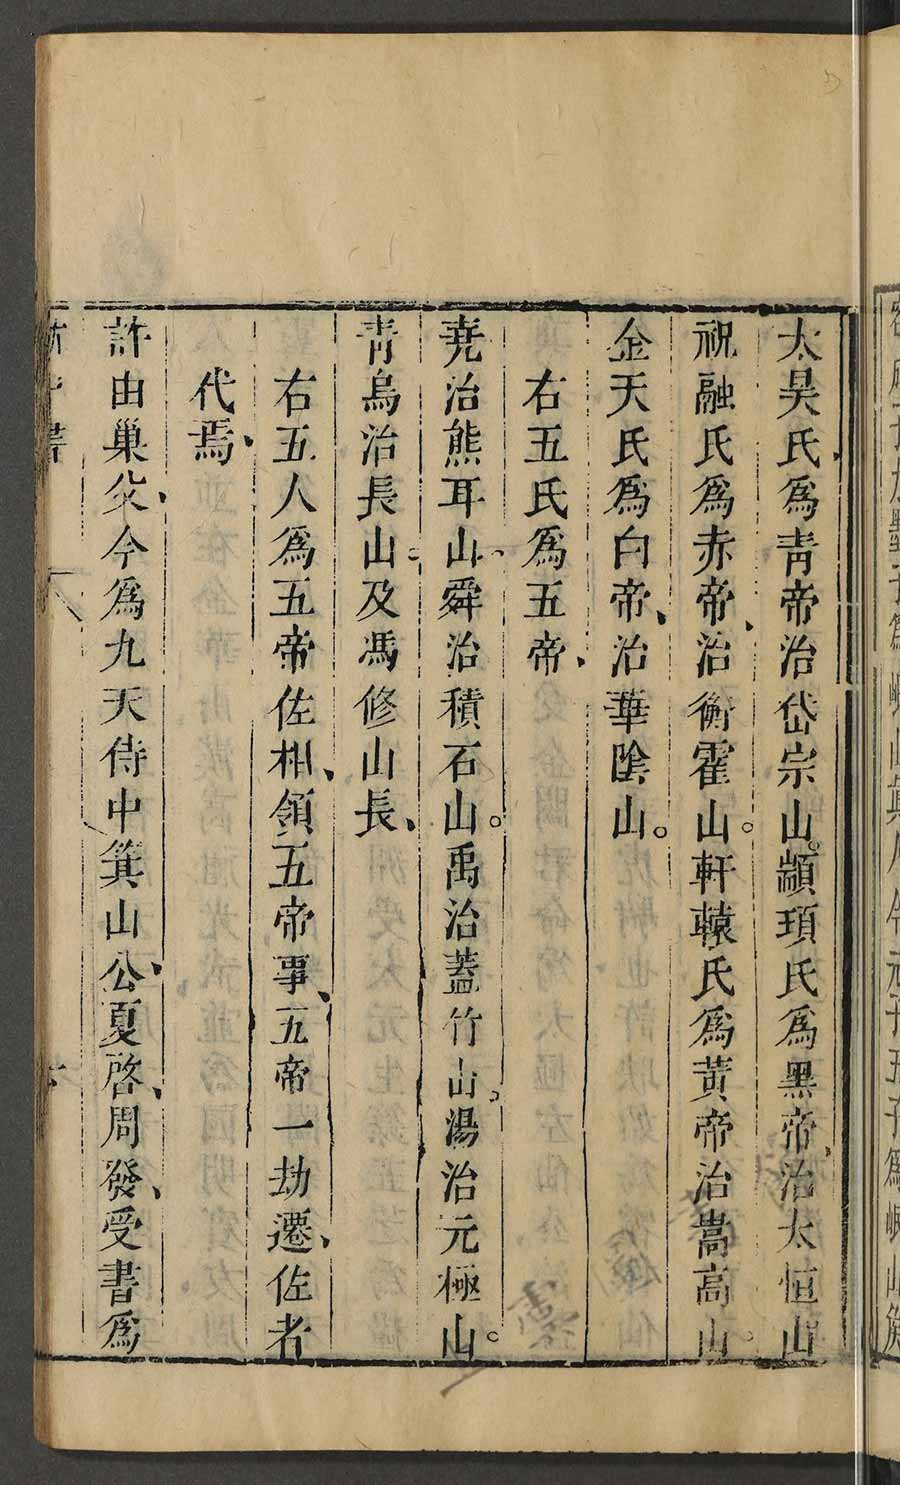 太昊氏爲青帝治岱宗山。顓頊氏爲黑帝、治太恒山
祝融氏爲赤帝、治衡霍山。軒轅氏爲黃帝治嵩高山。
金天氏爲白帝、治華陰山。
右五氏爲五帝、
堯治熊耳山、舜治積石山。禹治蓋竹山。湯治元極山。
青烏治長山、及馮修山長、
右五人爲五帝佐相、領五帝事、五帝一劫遷、佐者
代焉、
許由巢父、今爲九天侍中箕山公、夏啓、周發、受書爲